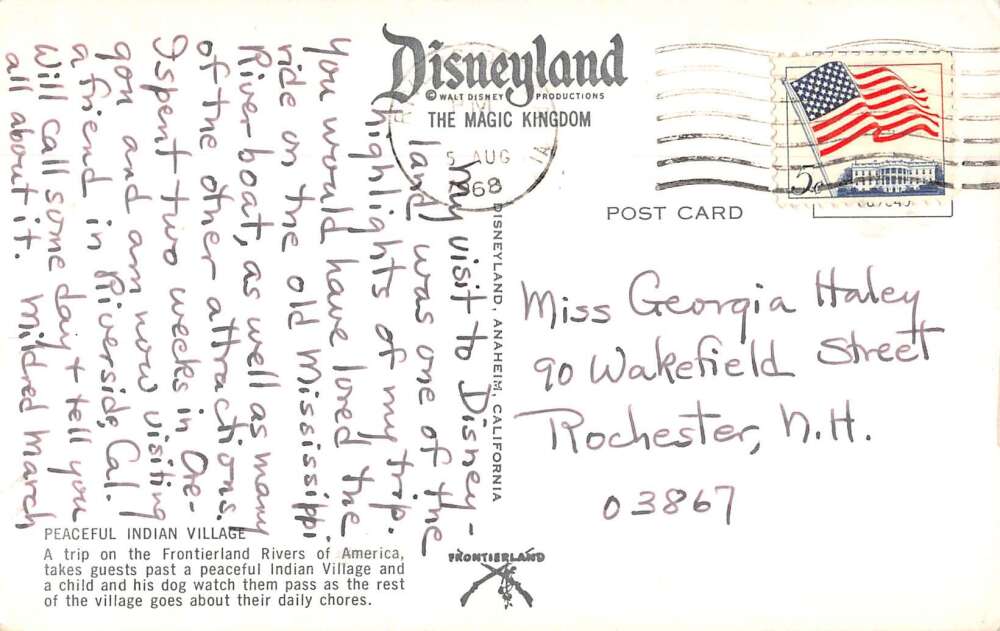 Disneyland
© WALT DISNEY PRODUCTIONS
THE MAGIC KINGDOM
PM
5 AUG
1968
5c
POST CARD
DISNEYLAND, ANAHEIM, CALIFORNIA
My visit to Disney-
land was one of the
highlights of my trip.
You would have loved the
ride on the old Mississippi
River boat, as well as many
of the other attractions.
I spent two weeks in Ore-
gon and am now visiting
a friend in Riverside, Cal.
Will call some day & tell you
all about it. Mildred March
Miss Georgia Haley
90 Wakefield Street
Rochester, N.H.
03867
PEACEFUL INDIAN VILLAGE
A trip on the Frontierland Rivers of America,
takes guests past a peaceful Indian Village and
a child and his dog watch them pass as the rest
of the village goes about their daily chores.
FRONTIERLAND